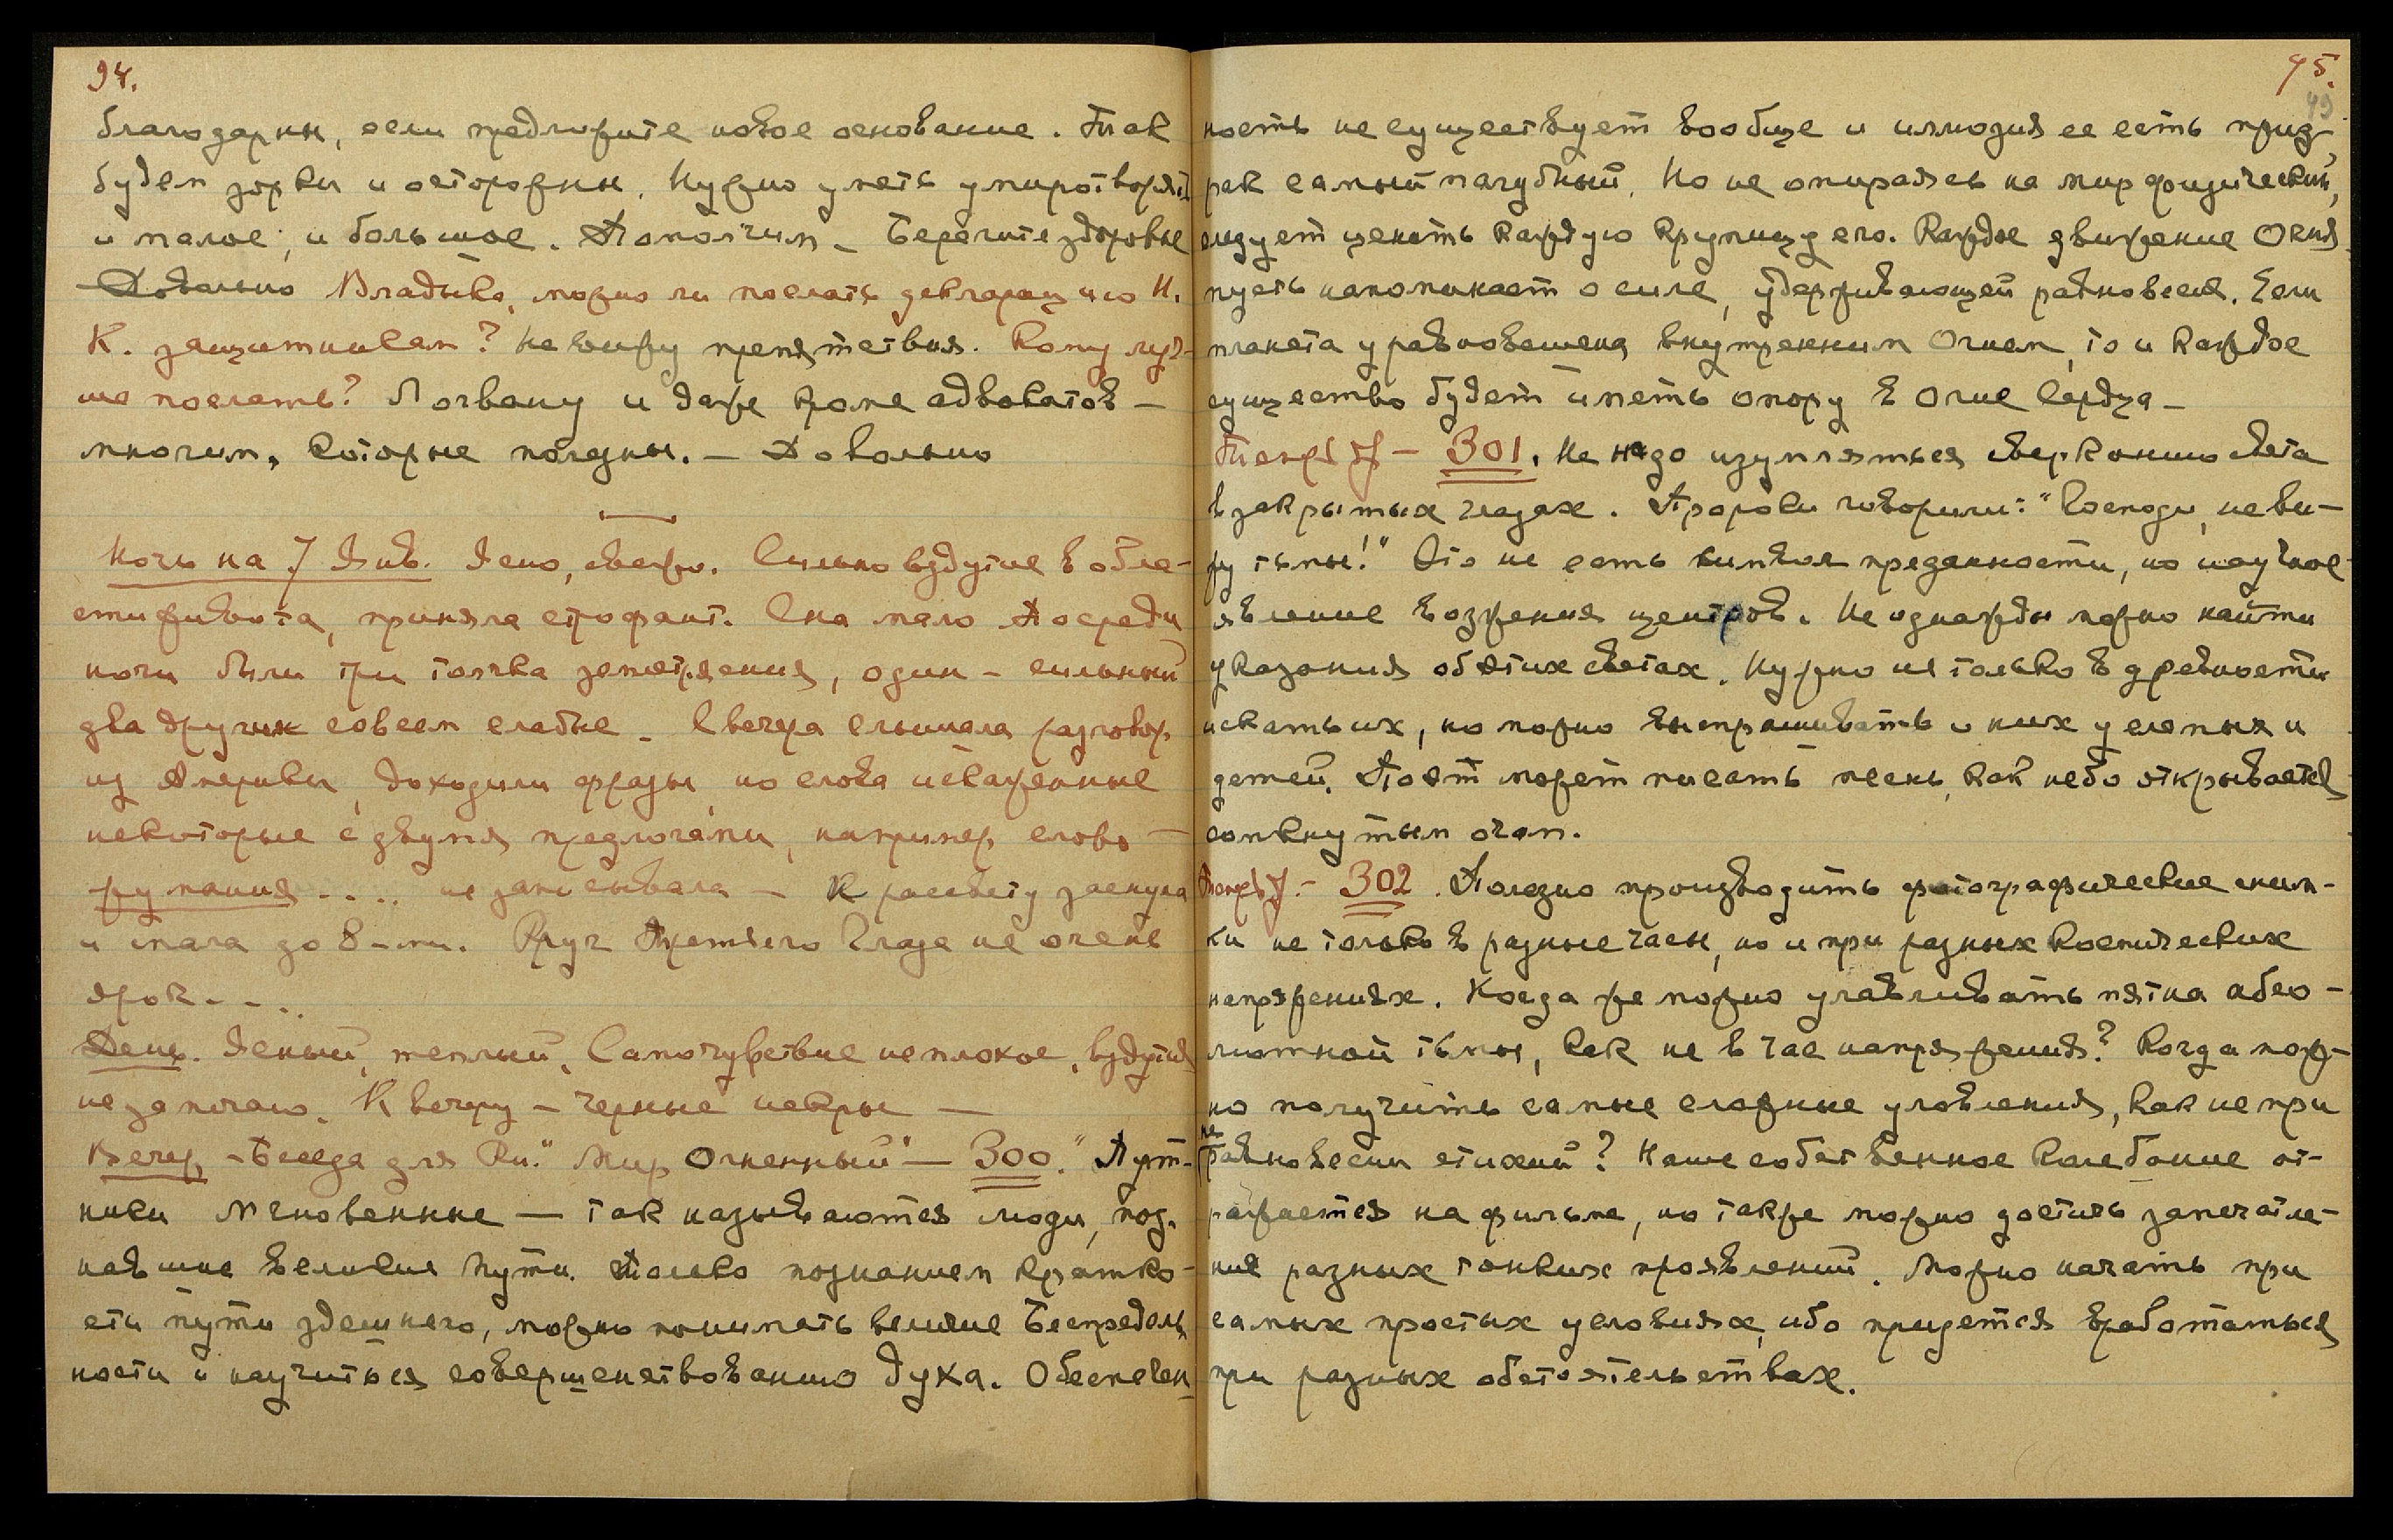 94.
благодарны, если предложите новое основание. Так
будем зорки и осторожны. Нужно уметь умиротворять
и малое, и большое. Помолчим – Берегите здоровье
Довольно Владыка, можно ли послать декларацию Н.
К. защитникам? Не вижу препятствия. Кому луч-
ше послать? Логвану и даже кроме адвокатов –
многим, которые полезны. – Довольно
Ночь на 7 Янв. Ясно, свежо. Сильно вздутие в обла-
сти живота, приняла строфант. Сна мало Посреди
ночи были три толчка землетрясения, один – сильный
два других совсем слабые – С вечера слышала разговор
из Америки, доходили фразы, но слова искаженные
некоторые с двумя предлогами, например слово –
румания .... не записывала – К рассвету заснула
и спала до 8-ми. Круг Третьего Глаза не очень
ярок – ..
День. Ясный, теплый. Самочувствие неплохое, вздутия
не замечаю. К вечеру – черные искры –
Вечер – Беседа для Кн. "Мир Огненный" – 300. "Пут-
ники мгновенные – так называются люди, поз-
навшие великие Пути. Только познанием кратко-
сти пути здешнего, можно понимать величие Беспредель
ности и научиться совершенствованию духа. Обеспечен
95.
49
ность не существует вообще и иллюзия ее есть приз-
рак самый пагубный. Но не опираясь на мир физический,
следует ценить каждую крупицу его. Каждое движение Огня
пусть напоминает о силе, удерживающей равновесия. Если
планета уравновешена внутренним Огнем, то и каждое
существо будет иметь опору в Огне Сердца –
301. Не надо изумляться сверканию света
в закрытых глазах. Пророки говорили: "Господи, не ви-
жу тьмы!" Это не есть символ преданности, но научное
явление воззрения центров. Не однажды можно найти
указания об этих светах. Нужно не только в древности
искать их, но можно выспрашивать о них у слепых и
детей. Поэт может писать песнь, как небо открывается
сомкнутым очам.
302. Полезно производить фотографические сним-
ки не только в разные часы, но и при разных космических
напряжениях. Когда же можно улавливать пятна абсо-
лютной тьмы, как не в час напряжения? Когда мож-
но получить самые сложные уловления, как не при
неравновесии стихий? Наше собственное колебание от-
ражается на фильме, но также можно достичь запечатле-
ния разных тонких проявлений. Можно начать при
самых простых условиях, ибо придется вработаться
при разных обстоятельствах.